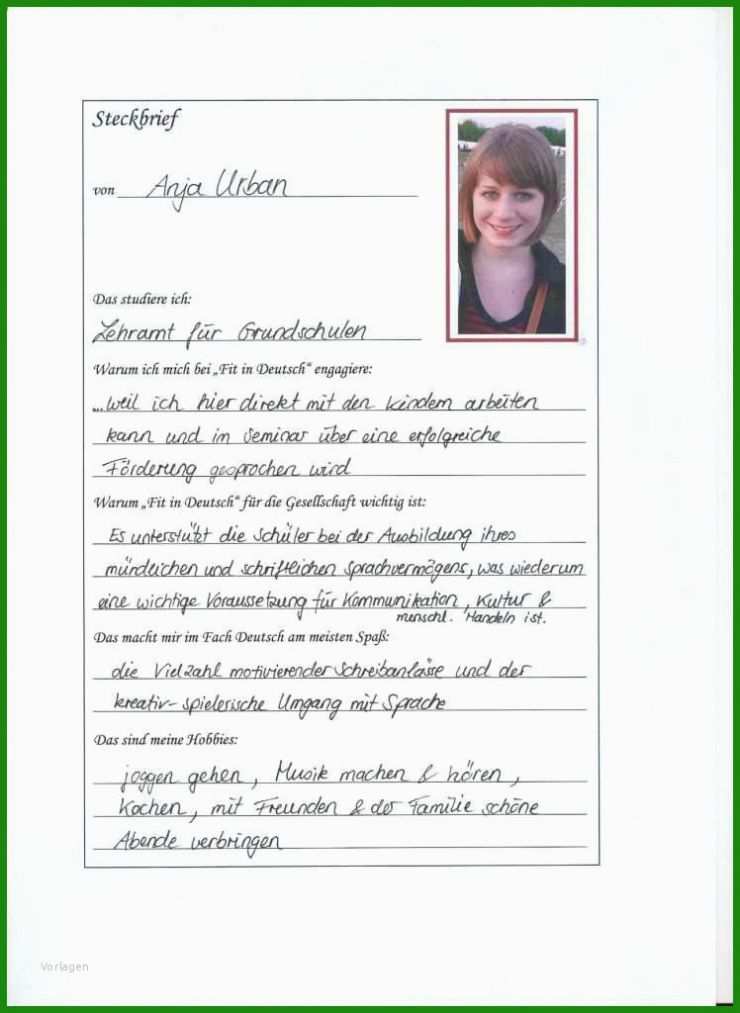 Steckbrief
von Anja Urban
Das studiere ich:
Lehramt für Grundschulen
Warum ich mich bei „Fit in Deutsch" engagiere:
...weil ich hier direkt mit den Kindern arbeiten
kann und im Seminar über eine erfolgreiche
Förderung gesprochen wird
Warum „Fit in Deutsch" für die Gesellschaft wichtig ist:
Es unterstützt die Schüler bei der Ausbildung ihres
mündlichen und schriftlichen Sprachvermögens, was wiederum
eine wichtige Voraussetzung für Kommunikation, Kultur &
menschl. Handeln ist.
Das macht mir im Fach Deutsch am meisten Spaß:
die Vielzahl motivierender Schreibanlässe und der
kreativ-spielerische Umgang mit Sprache
Das sind meine Hobbies:
joggen gehen, Musik machen & hören,
Kochen, mit Freunden & der Familie schöne
Abende verbringen
Vorlagen